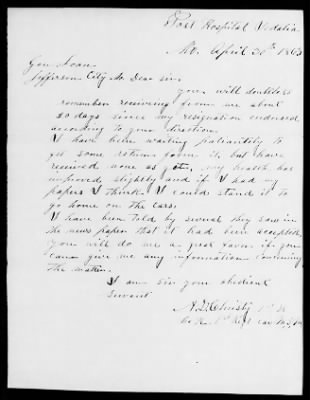 Post Hospital Sedalia
Mo. April 30th 1863
Gen. Loan.
Jefferson City Mo Dear sir.
you will doubtless
remember receiving from me about
20 days since my resignation endorsed
according to your direction.
I have been waiting patiently to
get some returns from it, but have
received none as yet, my health has
improved slightly and if I had my
papers I think I could stand it to
go home on the cars.
I have been told by several they saw in
the news paper that it had been accepted,
you will do me a great favor if you
can give me any information concerning
the matter.
I am sir your obedient
Servant
A. D. Christy 1st Lt
Co 1st Regt Cav M.S.M